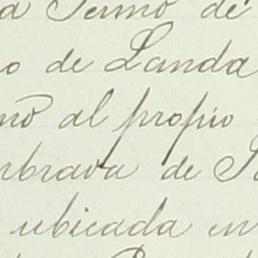 a Termo de
o de Landa
no al propio
mbrava de
ubicada en